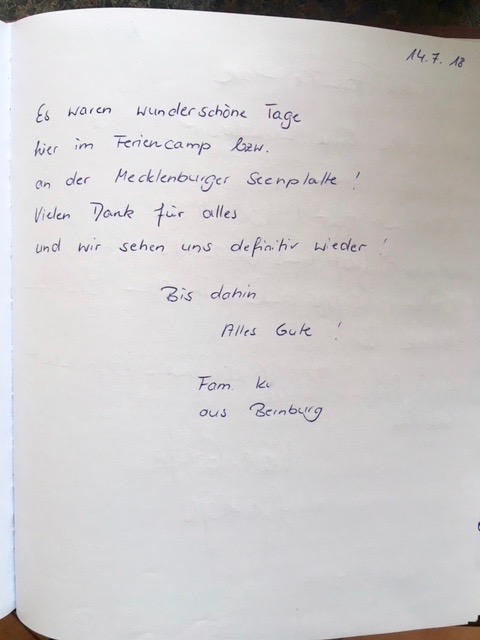 14.7.18
Es waren wunderschöne Tage
hier im Feriencamp bzw.
an der Mecklenburger Seenplatte!
Vielen Dank für alles
und wir sehen uns definitiv wieder!
Bis dahin
Alles Gute!
Fam.
aus Bernburg